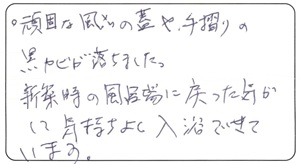 。頑固な風呂の蓋や、手摺りの
黒カビが落ちました。
新築時の風呂場に戻った気が
して気持ちよく入浴できて
います。